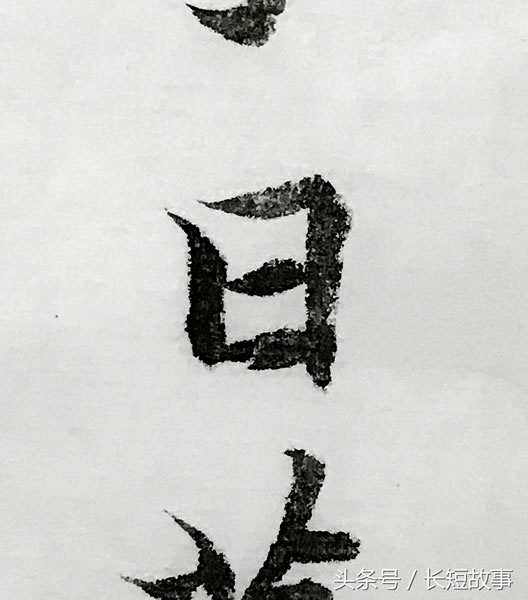 日
头条号 / 长短故事